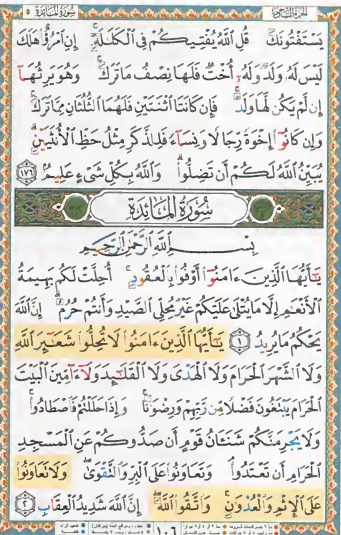 سورة المائدة ٥
الجزء السادس
يَسْتَفْتُونَكَ قُلِ ٱللَّهُ يُفْتِيكُمْ فِى ٱلْكَلَٰلَةِ ۚ إِنِ ٱمْرُؤٌا۟ هَلَكَ
لَيْسَ لَهُۥ وَلَدٌ وَلَهُۥٓ أُخْتٌ فَلَهَا نِصْفُ مَا تَرَكَ ۚ وَهُوَ يَرِثُهَآ
إِن لَّمْ يَكُن لَّهَا وَلَدٌ ۚ فَإِن كَانَتَا ٱثْنَتَيْنِ فَلَهُمَا ٱلثُّلُثَانِ مِمَّا تَرَكَ ۚ
وَإِن كَانُوٓا۟ إِخْوَةً رِّجَالًا وَنِسَآءً فَلِلذَّكَرِ مِثْلُ حَظِّ ٱلْأُنثَيَيْنِ ۗ
يُبَيِّنُ ٱللَّهُ لَكُمْ أَن تَضِلُّوا۟ ۗ وَٱللَّهُ بِكُلِّ شَىْءٍ عَلِيمٌۢ ١٧٦
سُورَةُ المَائِدَةِ
بِسْمِ ٱللَّهِ ٱلرَّحْمَٰنِ ٱلرَّحِيمِ
يَٰٓأَيُّهَا ٱلَّذِينَ ءَامَنُوٓا۟ أَوْفُوا۟ بِٱلْعُقُودِ ۚ أُحِلَّتْ لَكُم بَهِيمَةُ
ٱلْأَنْعَٰمِ إِلَّا مَا يُتْلَىٰ عَلَيْكُمْ غَيْرَ مُحِلِّى ٱلصَّيْدِ وَأَنتُمْ حُرُمٌ ۗ إِنَّ ٱللَّهَ
يَحْكُمُ مَا يُرِيدُ ١ يَٰٓأَيُّهَا ٱلَّذِينَ ءَامَنُوا۟ لَا تُحِلُّوا۟ شَعَٰٓئِرَ ٱللَّهِ
وَلَا ٱلشَّهْرَ ٱلْحَرَامَ وَلَا ٱلْهَدْىَ وَلَا ٱلْقَلَٰٓئِدَ وَلَآ ءَآمِّينَ ٱلْبَيْتَ
ٱلْحَرَامَ يَبْتَغُونَ فَضْلًا مِّن رَّبِّهِمْ وَرِضْوَٰنًا ۚ وَإِذَا حَلَلْتُمْ فَٱصْطَادُوا۟ ۚ
وَلَا يَجْرِمَنَّكُمْ شَنَـَٔانُ قَوْمٍ أَن صَدُّوكُمْ عَنِ ٱلْمَسْجِدِ
ٱلْحَرَامِ أَن تَعْتَدُوا۟ ۘ وَتَعَاوَنُوا۟ عَلَى ٱلْبِرِّ وَٱلتَّقْوَىٰ ۖ وَلَا تَعَاوَنُوا۟
عَلَى ٱلْإِثْمِ وَٱلْعُدْوَٰنِ ۚ وَٱتَّقُوا۟ ٱللَّهَ ۖ إِنَّ ٱللَّهَ شَدِيدُ ٱلْعِقَابِ ٢
١٠٦